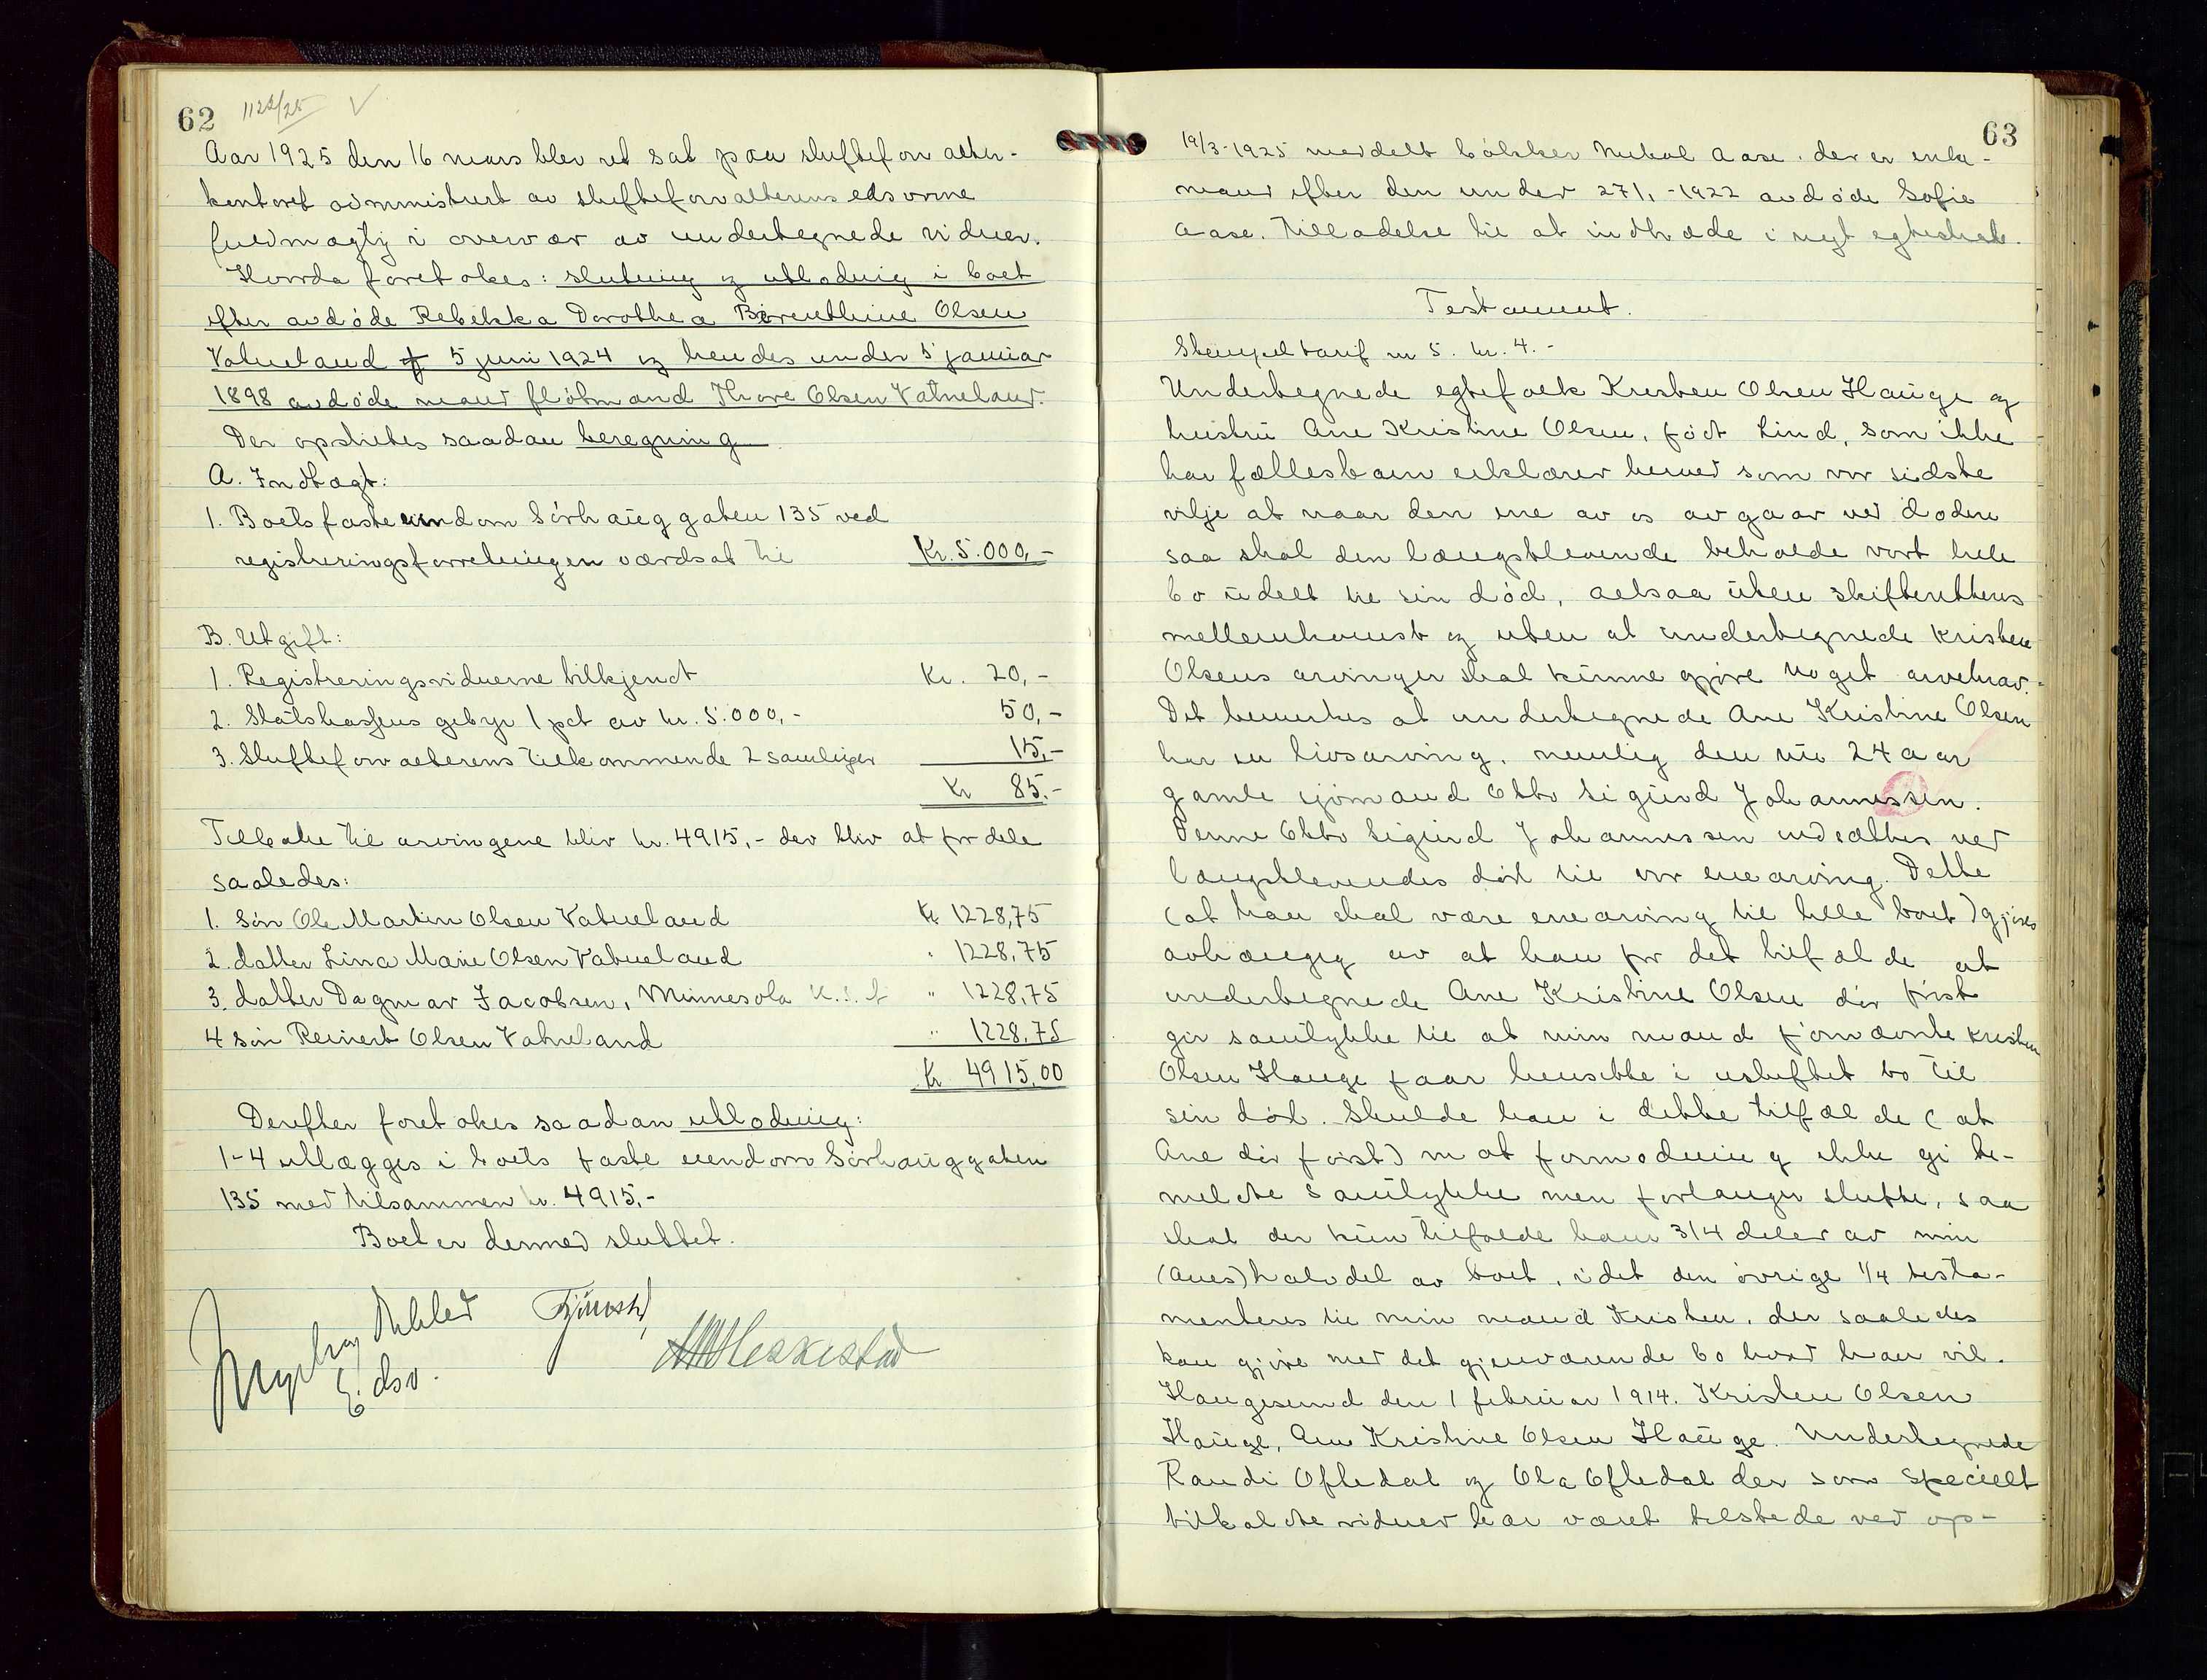 62 1122/25 ✓
Aar 1925 den 16 mars blev ret sat paa skifteforvalter-
kontoret administrert av skifteforvalterens edsvorne
fuldmægtig i overvær av undertegnede vidner.
Hvorda foretokes: slutning og utlodning i boet
efter avdøde Rebekka Dorothea Berenthine Olsen
Vatneland † 5 juni 1924 og hendes under 5 januar
1898 avdøde mand fløtmand Thore Olsen Vatneland.
Der opstilles saadan beregning
A. Indtægt:
1. Boets faste eiendom Sørhauggaten 135 ved
registreringsforretningen værdsat til Kr. 5.000,-
B. Utgift:
1. Registreringsvidnerne tilkjendt Kr. 20,-
2. Statskassens gebyr 1 pct av kr. 5.000,- 50,-
3. Skifteforvalterens tilkommende 2 samlinger 15,-
Kr 85.-
Tilbake til arvingene blir kr. 4915,- der blir at fordele
saaledes:
1. Søn Ole Martin Olsen Vatneland Kr 1228,75
2. datter Lina Marie Olsen Vatneland " 1228,75
3. datter Dagmar Jacobsen, Minnesota U.S.A " 1228,75
4 søn Reinert Olsen Vatneland " 1228,75
Kr 4915,00
Derefter foretokes saadan utlodning:
1-4 utlægges i boets faste eiendom Sørhauggaten
135 med tilsammen kr. 4915,-
Boet er dermed sluttet.
Edsv.
63
19/3-1925 meddelt bøkker Mikal Aase, der er enke-
mand efter den under 27/1-1922 avdøde Sofie
Aase, tilladelse til at indtræde i nyt egteskab.
Testament.
Stempeltarif nr 5. kr. 4.-
Undertegnede egtefolk Kristen Olsen Hauge og
hustru Ane Kristine Olsen, født Lind, som ikke
har fællesbarn erklærer herved som vor sidste
vilje at naar den ene av os avgaar ved døden
saa skal den længstlevende beholde vort hele
bo udelt til sin død, altsaa uten skifterettens
mellemkomst og uten at undertegnede Kristen
Olsens arvinger skal kunne gjøre noget arvekrav.
Det bemerkes at undertegnede Ane Kristine Olsen
har en livsarving, nemlig den nu 24 aar
gamle sjømand Otto Sigurd Johannessen.
Denne Otto Sigurd Johannessen indsættes ved
længstlevendes død til vor enearving. Dette
(at han skal være enearving til hele boet) gjøres
avhængig av at han for det tilfælde at
undertegnede Ane Kristine Olsen dør først
gir samtykke til at min mand fornævnte Kristen
Olsen Hauge faar hensitte i uskiftet bo til
sin død. Skulde han i dette tilfælde (at
Ane dør først) mot formodning ikke gi be-
meldte samtykke men forlanger skifte, saa
skal der kun tilfalde ham 3/4 deler av min
(Anes) halvdel av boet, idet den øvrige 1/4 testa-
menteres til min mand Kristen, der saaledes
kan gjøre med det gjenværende bo hvad han vil.
Haugesund den 1 februar 1914. Kristen Olsen
Hauge, Ane Kristine Olsen Hauge. Undertegnede
Randi Oftedal og Ola Oftedal der som specielt
tilkaldte vidner har været tilstede ved op-